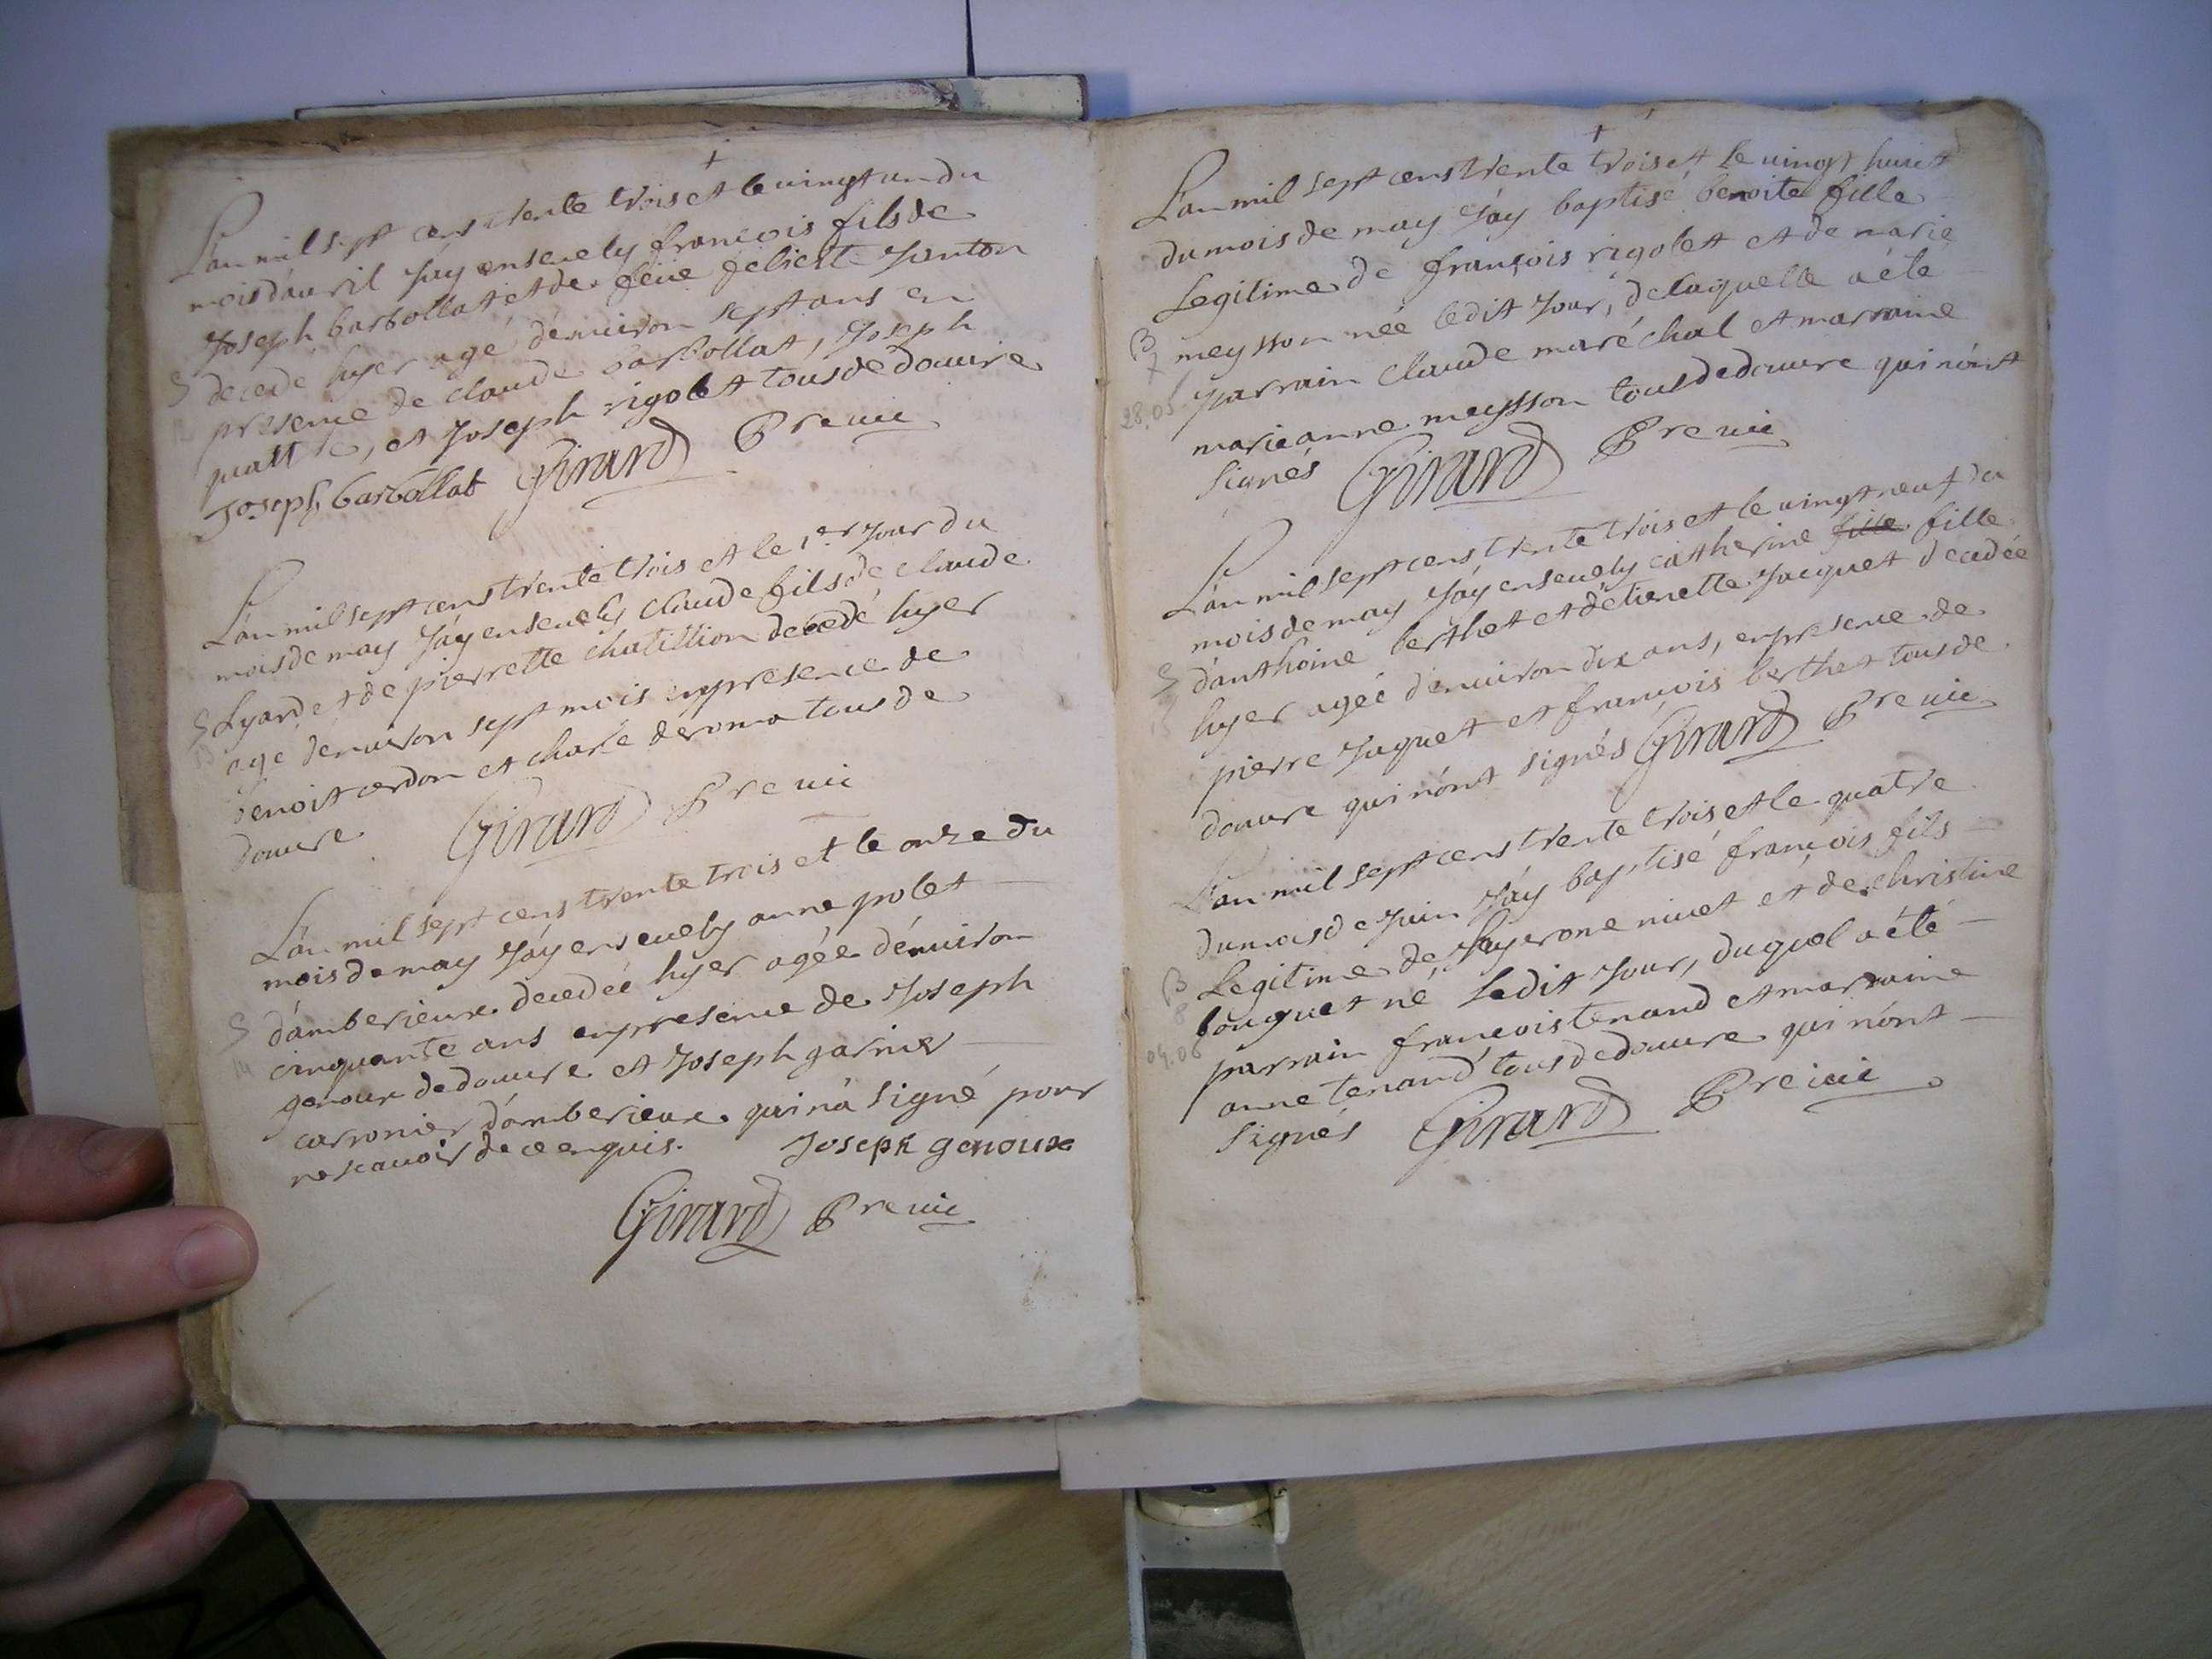 +
L'an mil sept cens trente trois et le vingt un du
mois d'avril j'ay ensevely françois fils de
Joseph barbollat et de feüe felicite Janton
S decede hyer agé d'environ sept ans en
presence de claude barbollat, Joseph
et Joseph rigolet tous de douvre
Joseph barbollat Girard Pre vic
L'an mil sept cens trente trois et le 1er Jour du
mois de may J'ay ensevely claude fils de claude
S Lyard et de pierrette chatillion decedé hyer
agé d'environ sept mois en presence de
benoit cerdon et charle deroma tous de
douvre Girard Pre vic
L'an mil sept cens trente trois et le onze du
mois de may J'ay ensevely anne polet
S d'amberieux decedée hyer agée d'environ
14 cinquante ans en presence de Joseph
genoux de douvre et Joseph garnier
carronier d'amberieux qui n'a signé pour
ne scavoir de ce enquis. Joseph genoux
Girard Pre vic
+
L'an mil sept cens trente trois et le vingt huict
du mois de may J'ay baptisé benoite fille
Legitime de françois rigolet et de marie
B meysson née ledit Jour, de laquelle a éte
7 parrain claude maréchal et marraine
28.05 marieanne meysson tous de douvre qui n'ont
signés Girard Pre vic
L'an mil sept cens trente trois et le vingt neuf du
mois de may J'ay ensevely catherine fille fille
S d'anthoine berthet et d'etienette Jacquet decedée
15 hyer agée d'environ dix ans, en presence de
pierre Jaquet et françois berthet tous de
douvre qui n'ont signés Girard Pre vic
L'an mil sept cens trente trois et le quatre
du mois de Juin J'ay baptisé françois fils
B Legitime de hyerome nivet et de christine
8 bouquet né ledit Jour, duquel a été
04.06 parrain françois tenand et marraine
anne tenand tous de douvre qui n'ont
signés Girard Pre vic